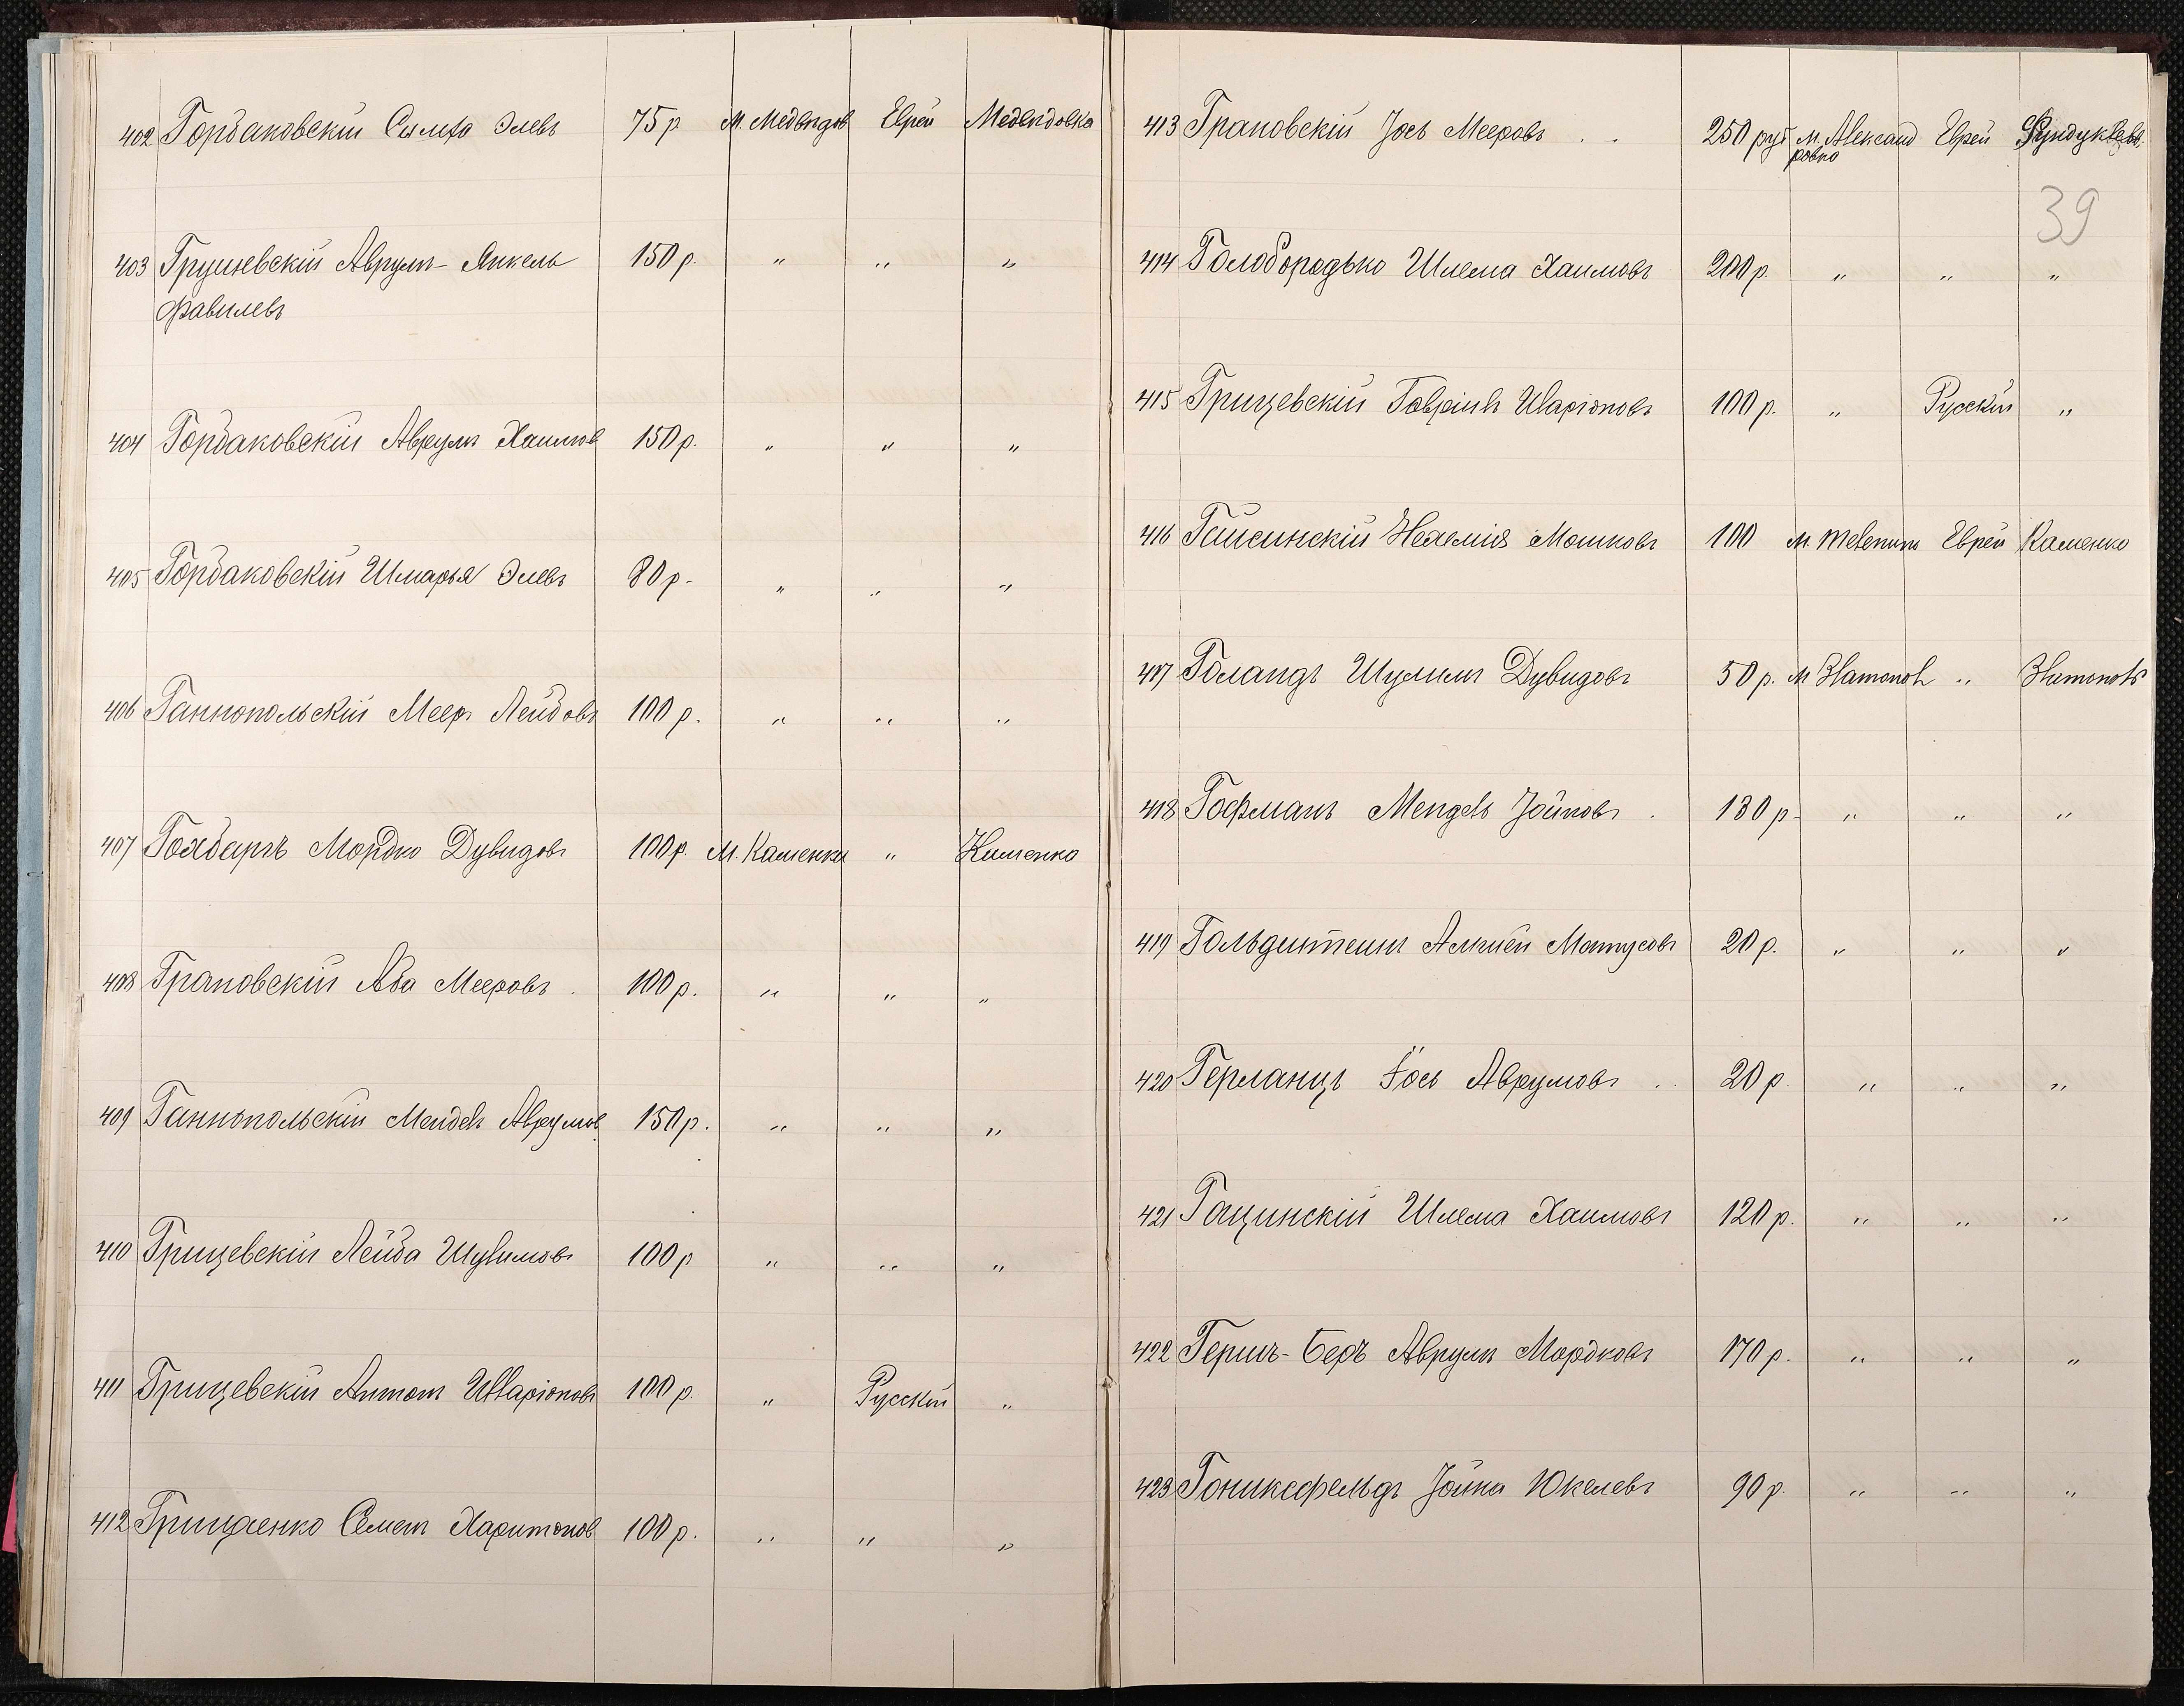 402 Горбаковскій Симха Элевъ 75 р М. Медвѣдов Еврей Медвѣдовка
403 Грушевскій Аврумъ-Янкель 150 р. " " "
Файвилевъ
404 Горбаковскій Аврумъ Хаимов 150 р. " " "
405 Горбаковскій Шмарья Элевъ 80 р. " " "
406 Ганнопольскій Мееръ Лейбовъ 100 р. " " "
407 Мордко Дувидовъ 100 р. М. Каменка " Каменка
408 Грановскій Аба Мееровъ 100 р. " " "
409 Ганнопольскій Мендель Аврумов 150 р. " " "
410 Грищевскій Лейба Шулимовъ 100 р " " "
411 Грищевскій Антонъ Илларіоновъ 100 р. " Русскій "
412 Грищенко Семенъ Харитонов 100 р. " " "
413 Грановскій Іось Мееровъ 250 руб М. Александ Еврей Фундуклѣев.
ровка
39
414 Голобородько Шлема Хаимовъ 200 р. " " "
415 Грищевскій Гавріилъ Иларіоновъ 100 р. " Русскій "
416 Гайсинскій Нехемія Мошковъ 100 М. Телепин Еврей Каменка
417 Голандъ Шулимъ Дувидовъ 50 р. М Златополь " Златополь
418 Гофманъ Мендель Іойновъ 130 р. " " "
419 Гольдштейнъ Мотусовъ 20 р. " " "
420 Іось Аврумовъ 20 р. " " "
421 Гощинскій Шлема Хаимовъ 120 р. " " "
422 Гершъ-Беръ Аврумъ Мордковъ 170 р. " " "
423 Гониксфельдъ Іойна Юкелевъ 90 р. " " "